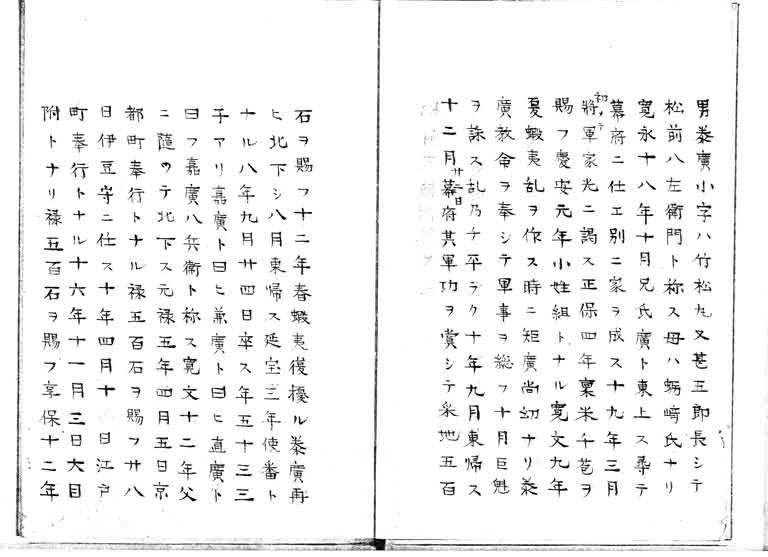 男泰廣小字ハ竹松丸又甚五郎長シテ
松前八左衛門ト称ス母ハ蛎﨑氏ナリ
寛永十八年十月兄氏廣ト東上ス尋テ
幕府ニ仕エ別ニ家ヲ成ス十九年三月
初メテ將軍家光ニ謁ス正保四年稟米千苞ヲ
賜フ慶安元年小姓組トナル寛文九年
夏蝦夷乱ヲ作ス時ニ矩廣尚幼ナリ泰
廣教命ヲ奉シテ軍事ヲ総フ十月巨魁
ヲ誅ス乱乃チ平ラク十年九月東帰ス
十二月廿二日幕府其軍功ヲ賞シテ采地五百
石ヲ賜フ十二年春蝦夷復擾ル泰廣再
ヒ北下シ八月東帰ス延宝三年使番ト
ナル八年九月廿四日卒ス年五十三三
子アリ嘉廣ト曰ヒ兼廣ト曰ヒ直廣ト
曰フ嘉廣八兵衛ト称ス寛文十二年父
ニ隨ツテ北下ス元禄五年四月五日京
都町奉行トナル禄五百石ヲ賜フ廿八
日伊豆守ニ仕ス十年四月十 日江戸
町奉行トナル十六年十一月三日大目
附トナリ禄五百石ヲ賜フ享保十二年